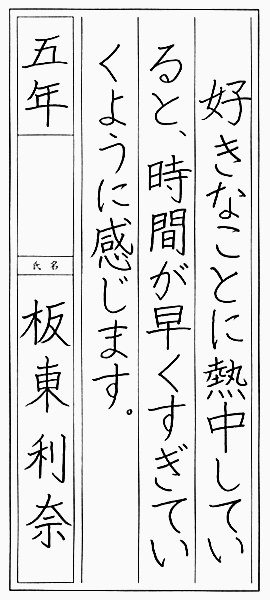 好きなことに熱中してい
ると、時間が早くすぎてい
くように感じます。
五年
氏名
板東利奈